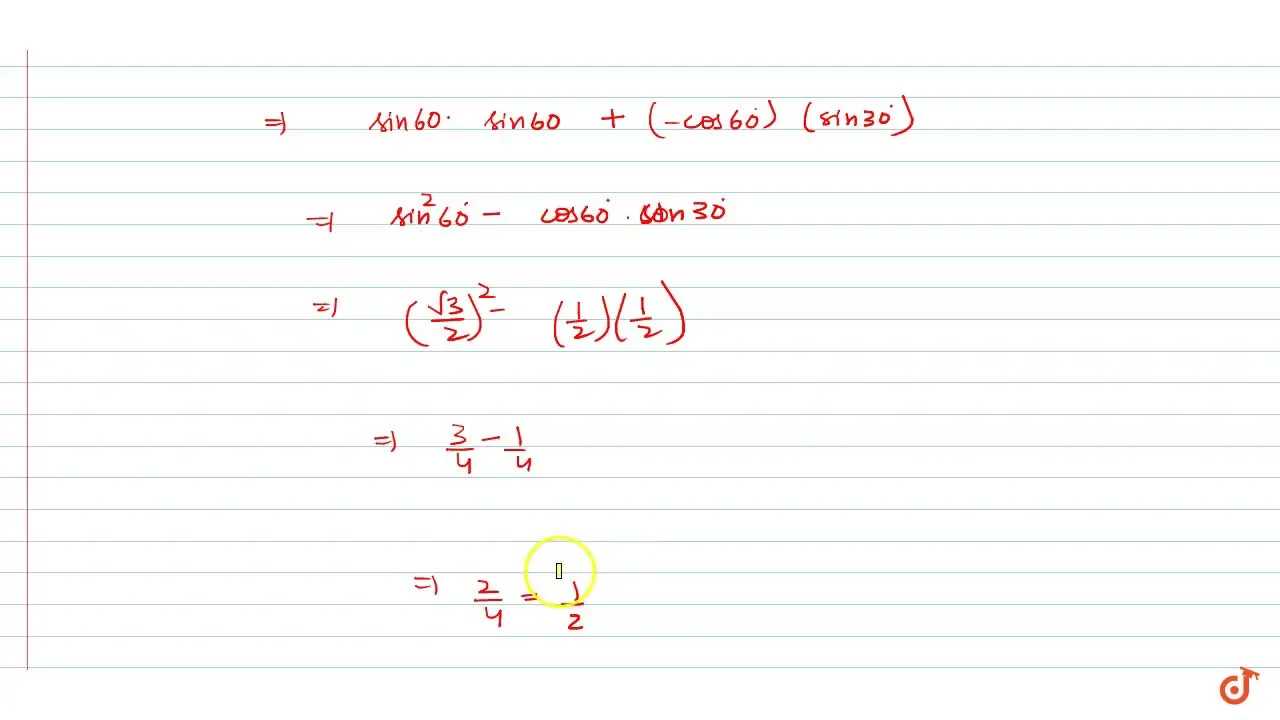 ⇒ sin60. sin60 + (-cos60°) (sin30°)
⇒ sin²60° - cos60° . sin30°
⇒ (√3/2)² - (1/2)(1/2)
⇒ 3/4 - 1/4
⇒ 2/4 = 1/2